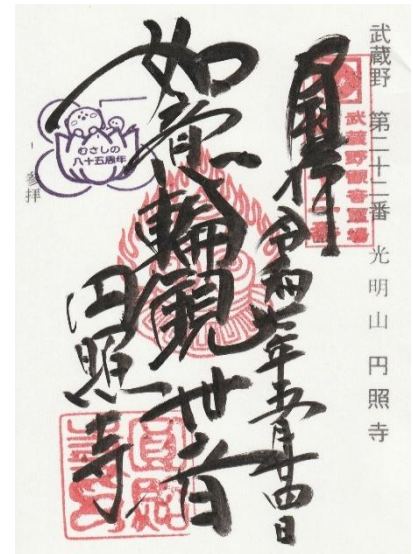 武蔵野 第二十二番 光明山 円照寺
武蔵野観音霊場
奉拝 令和七年五月廿四日
如意輪観世音
円照寺
むさしの
八十五周年
参拝